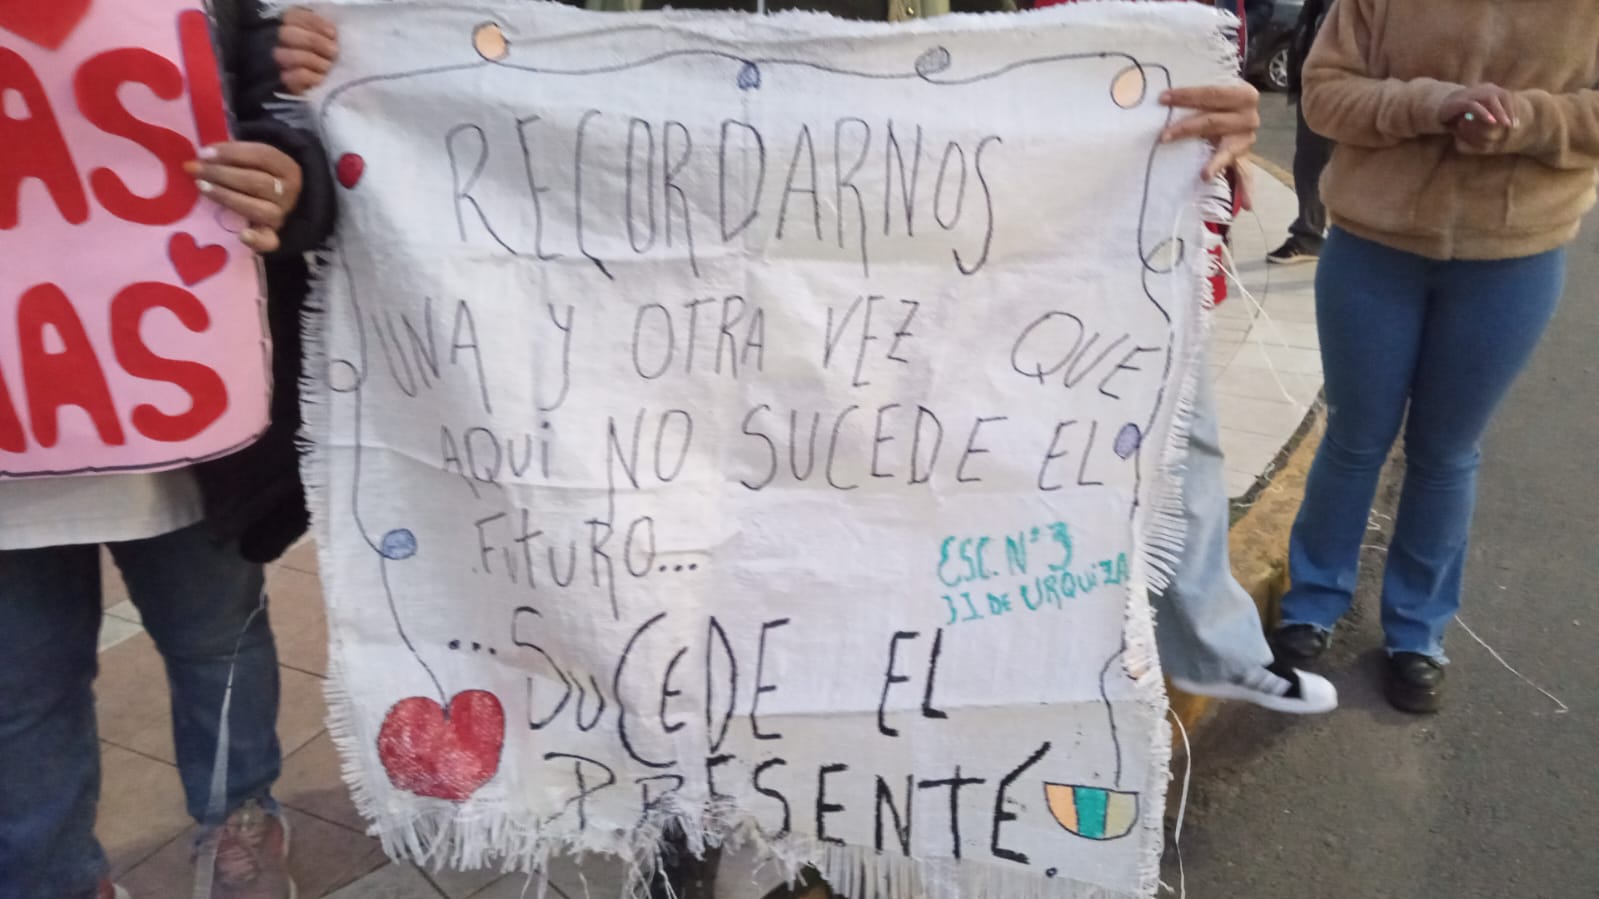 AS!
NAS
RECORDARNOS
UNA Y OTRA VEZ QUE
AQUI NO SUCEDE EL
FUTURO...
ESC. N° 3
JJ DE URQUIZA
...SUCEDE EL
PRESENTE.